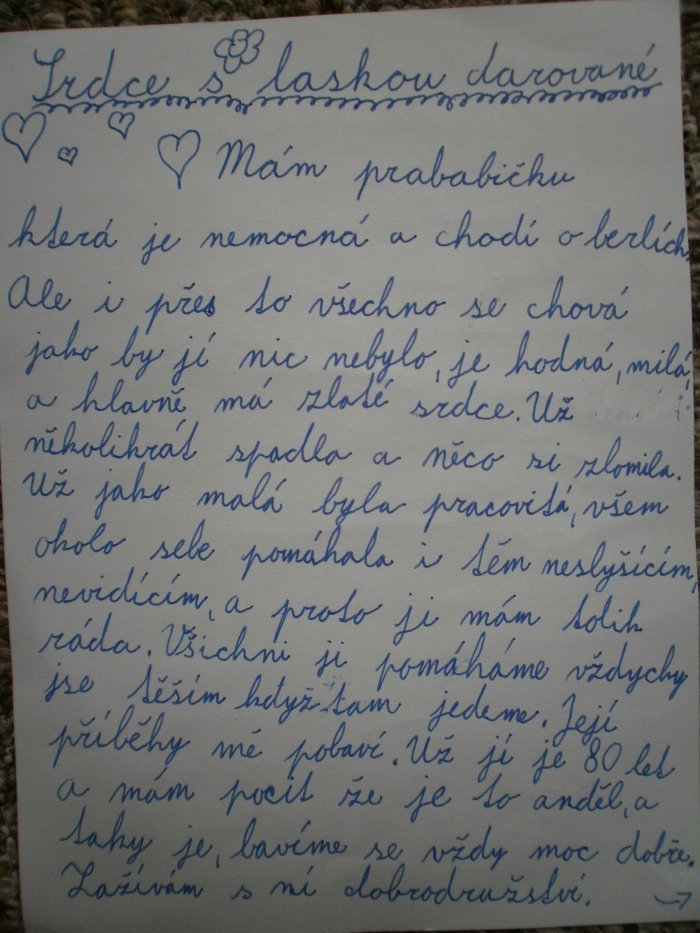 Srdce s laskou darované
Mám prababičku
která je nemocná a chodí o berlích.
Ale i přes to všechno se chová
jako by jí nic nebylo, je hodná, milá,
a hlavně má zlaté srdce. Už
několikrát spadla a něco si zlomila.
Už jako malá byla pracovitá, všem
okolo sebe pomáhala i těm neslyšícím,
nevidícím, a proto ji mám tolik
ráda. Všichni ji pomáháme vždycky
jse těším když tam jedeme. Její
příběhy mé pobaví. Už jí je 80 let
a mám pocit že je to anděl, a
taky je, bavíme se vždy moc dobře.
Zažívám s ní dobrodružství.